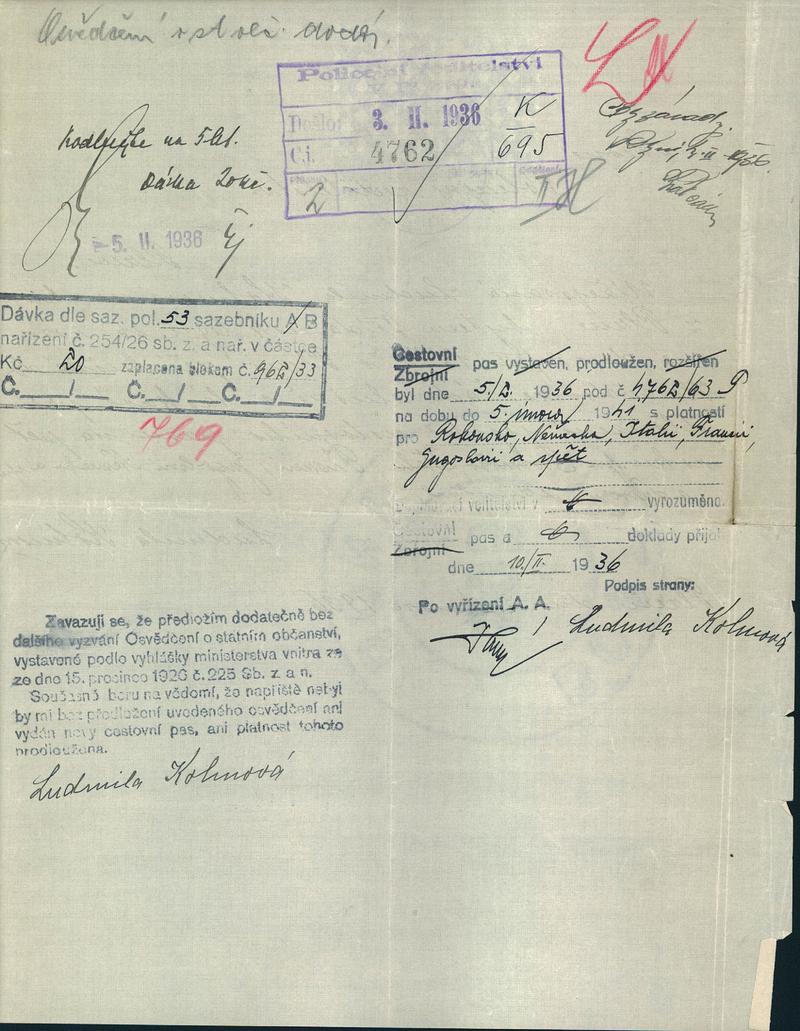 Osvědčení o st. obč. dodá.
Policejní ředitelství
Došlo: 3. II. 1936 K
Č.j. 4762 695
2
na 5 let.
Dávka 20 Kč.
- 5. II. 1936
Dávka dle saz. pol. 53 sazebníku A B
nařízení č. 254/26 sb. z. a nař. v částce
Kč 20 zaplacena blokem č. 962/33
Č. / Č. / Č. /
769
Cestovní
Zbrojní pas vystaven, prodloužen, rozšířen
byl dne 5/2. 1936 pod č 4762/63 P
na dobu do 5. února 1941 s platností
pro Rakousko, Německo, Italii, Francii,
Jugoslavii a zpět
velitelství v vyrozuměno.
Cestovní
Zbrojní pas a doklady přijal
dne 10/II. 1936
Podpis strany:
Po vyřízení A. A.
Ludmila Kolmová
Zavazuji se, že předložím dodatečně bez
dalšího vyzvání Osvědčení o státním občanství,
vystavené podle vyhlášky ministerstva vnitra ze
ze dne 15. prosince 1926 č. 225 Sb. z. a n.
Současně beru na vědomí, že napříště nebyl
by mi bez předložení uvedeného osvědčení ani
vydán nový cestovní pas, ani platnost tohoto
prodloužena.
Ludmila Kolmová